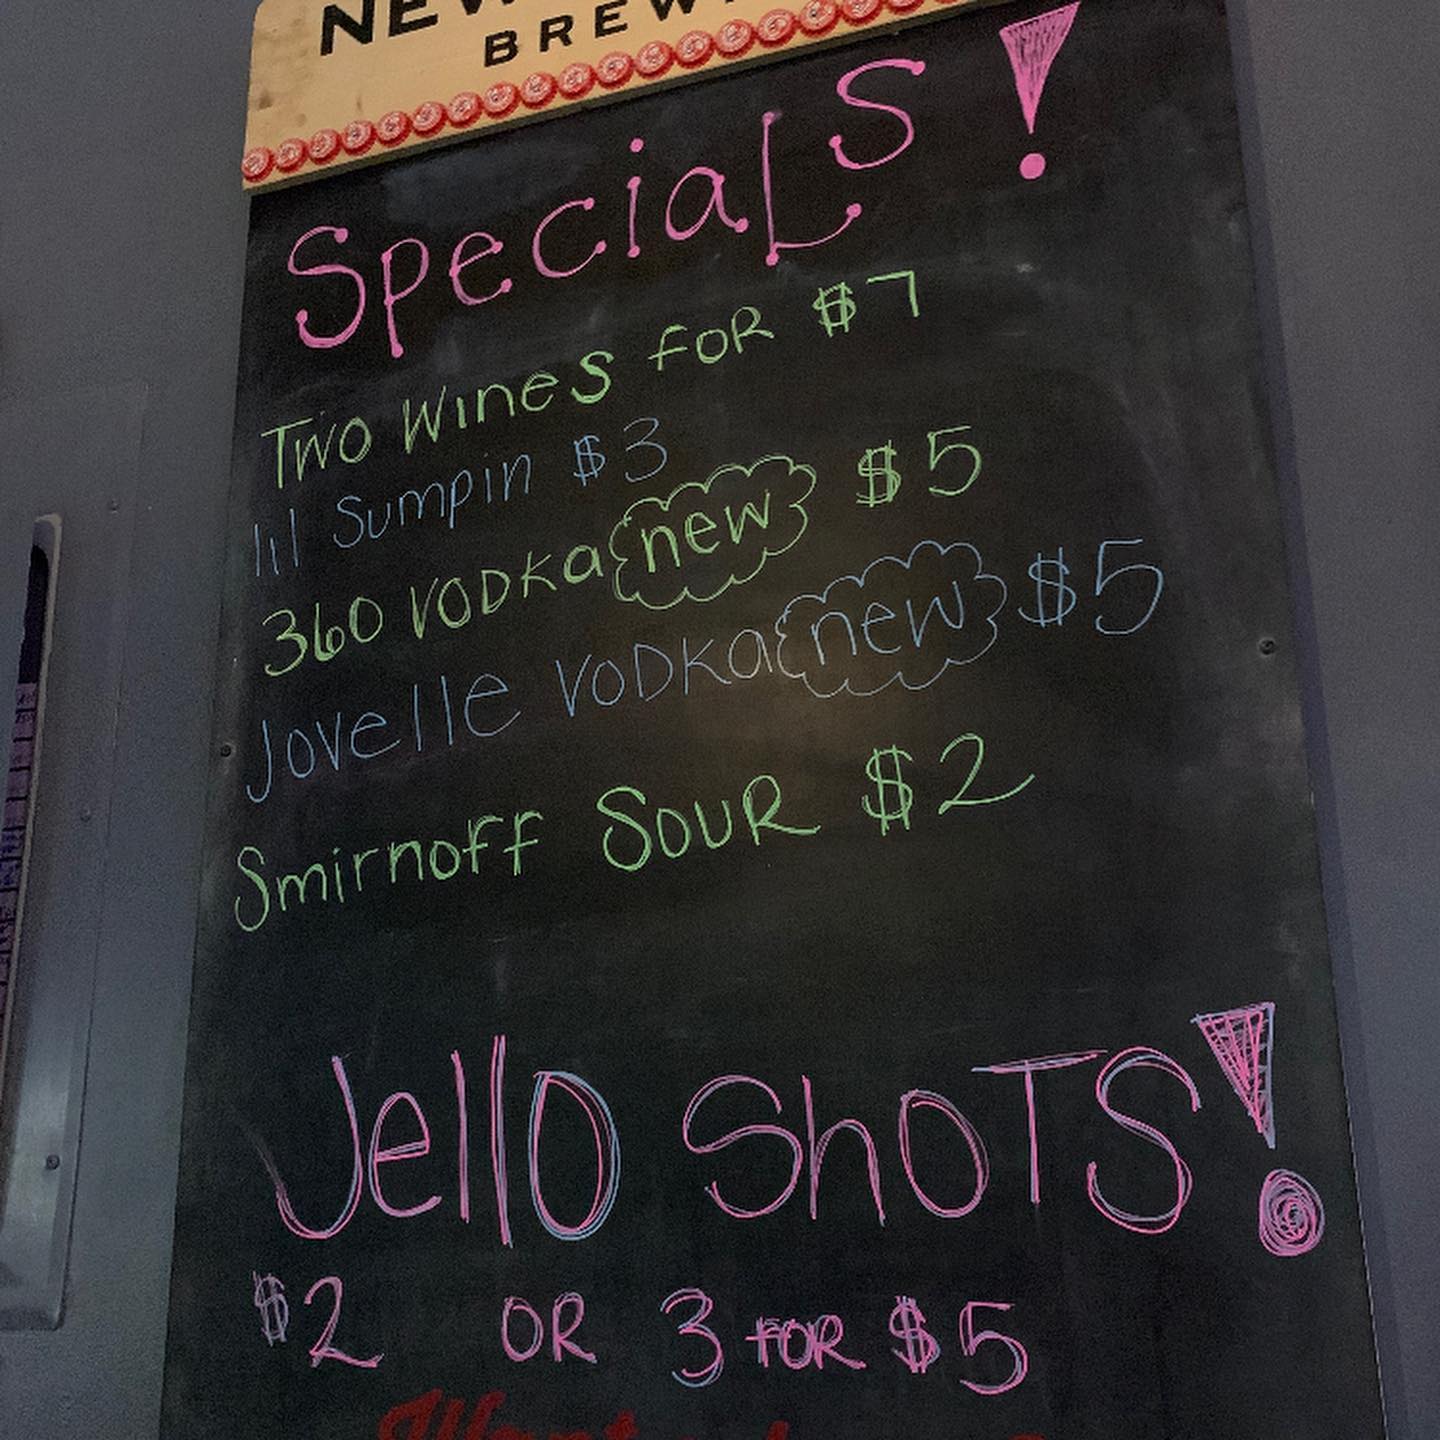 NEW
BREW
SpeciaLS!
Two Wines FOR $7
lil Sumpin $3
360 VODKa new $5
Jovelle VODKa new $5
Smirnoff SOUR $2
Jello ShoTS!
$2 OR 3 FOR $5